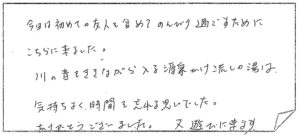 今日は初めての友人も含めてのんびり過ごすために
こちらに来ました。
川の音をききながら入る源泉かけ流しの湯は
気持ちよく、時間を忘れる思いでした。
ありがとうございました。 又遊びに来ます